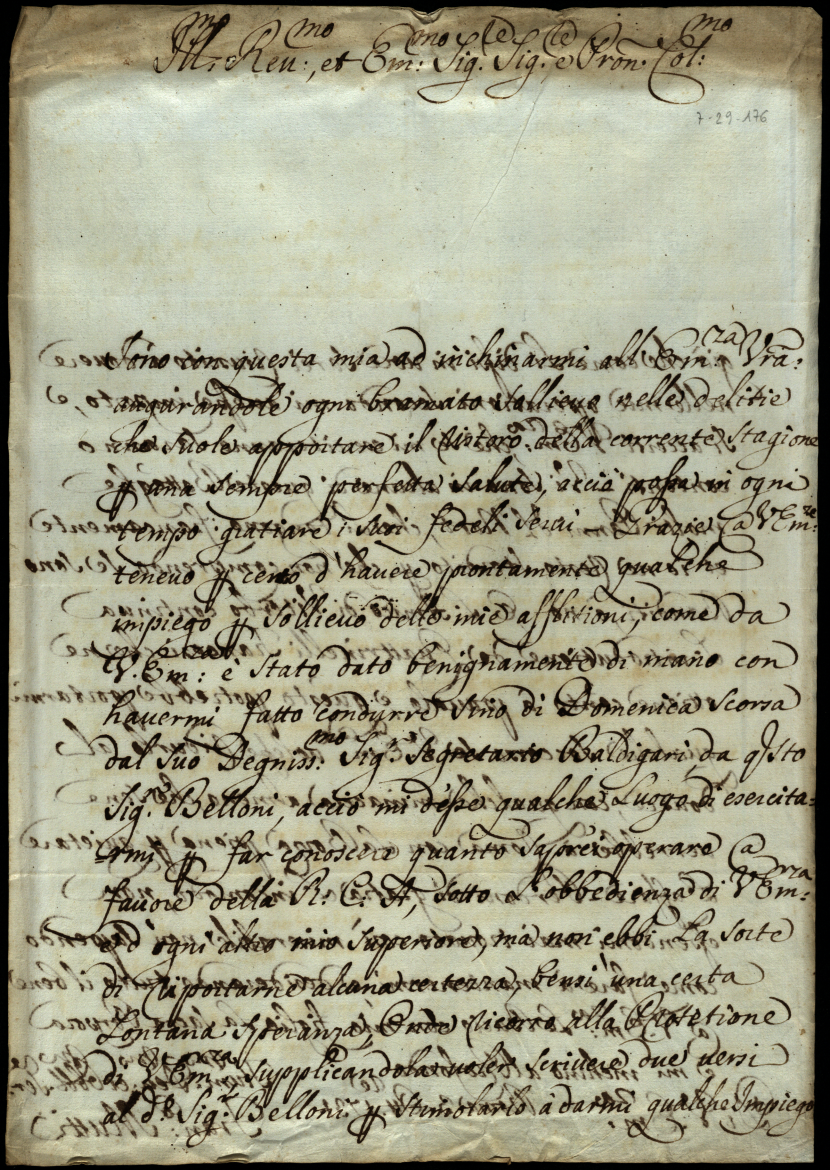 Ill.mo Reu:mo, et Em:mo Sig.re Sig.re e Pron. Col:mo
7-29-176
Sono con questa mia ad inchinarmi all Em:za Vra:
augurandole ogni bramato sollieuo nelle delitie
che suole apportare il ristoro della corrente stagione
p una sempre perfetta salute, acciò possa in ogni
tempo gratiare i suoi fedeli serui Grazie a V Em:
teneuo p certo d hauere prontamente qualche
impiego p sollieuo delle mie afflitioni, come da
V. Em:za è stato dato benignamente di mano con
hauermi fatto condurre sino di Domenica scorsa
dal suo Degniss:mo Sig.r Segretario Baldigari, da qsto
Sig.r Belloni, acciò mi desse qualche Luogo di esercita-
rmi p far conoscere quanto saprei operare a
fauore della R. C. A, sotto l'obbedienza di V Em:rza
e d'ogni altro mio superiore, ma non ebbi La sorte
di riportarne alcuna certezza, bensi una certa
Lontana speranza, Onde ricorro alla Protetione
di V Em:rza supplicandola uoler scriuere due uersi
al d.o Sig.r Belloni p stimolarlo à darmi qualche Impiego